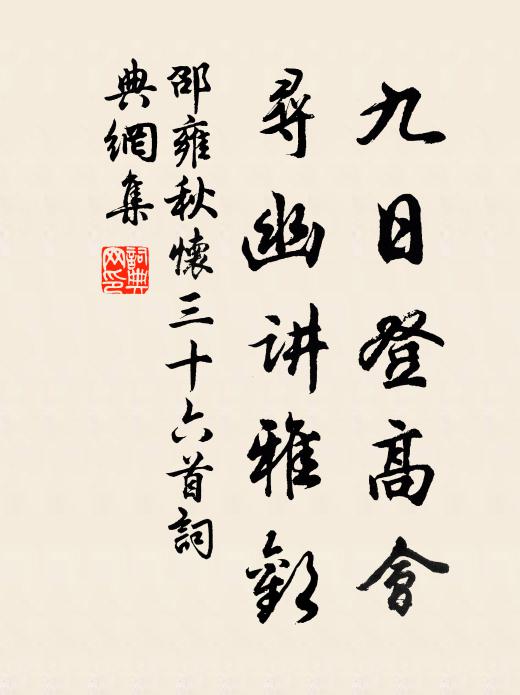 九日登高會
尋幽讲雅歡
邵雍秋懷三十六首詞
典網集
詞典
网印